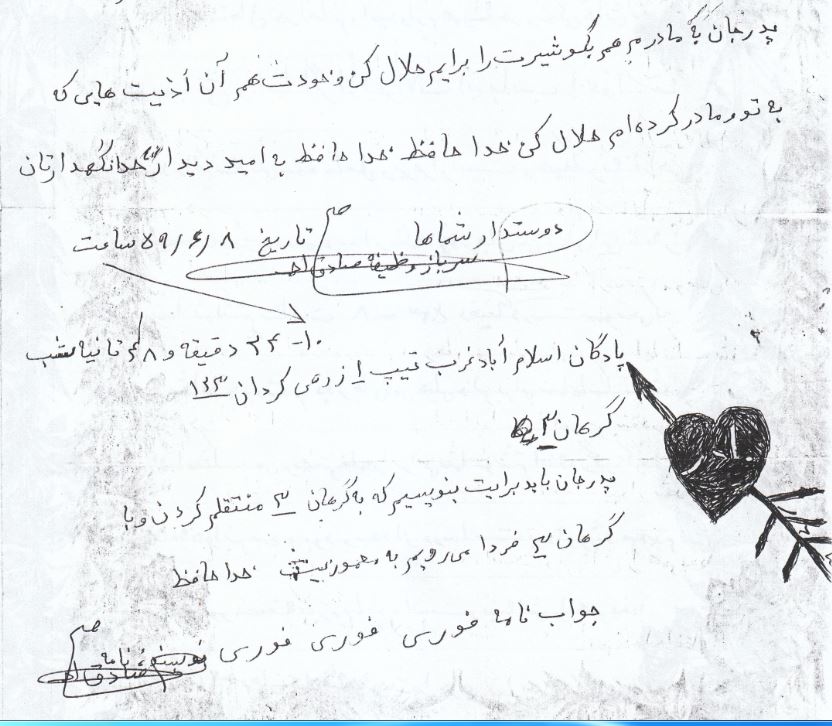 پدر جان به مادرم هم بگو شیرت را برایم حلال کن و خودت هم آن اذیت هایی که
به تو و مادر کرده ام حلال کن خدا حافظ خدا حافظ به امید دیدار خدا نگهدارتان
دوستدار شماها
تاریخ ۵۹/۶/۸ ساعت
سرباز وظیفه صادق
۱۰ دقیقه و ثانیه شب
پادگان اسلام آباد غرب تیپ ۱ زرهی گردان
گرهان ۳
پدر جان باید برایت بنویسیم که به گرهان ۳ منتقلم کردن و با
گرهان ۳ فردا می رویم به معموریت خدا حافظ
جواب نامه فوری فوری فوری نویسنده نامه
صادق